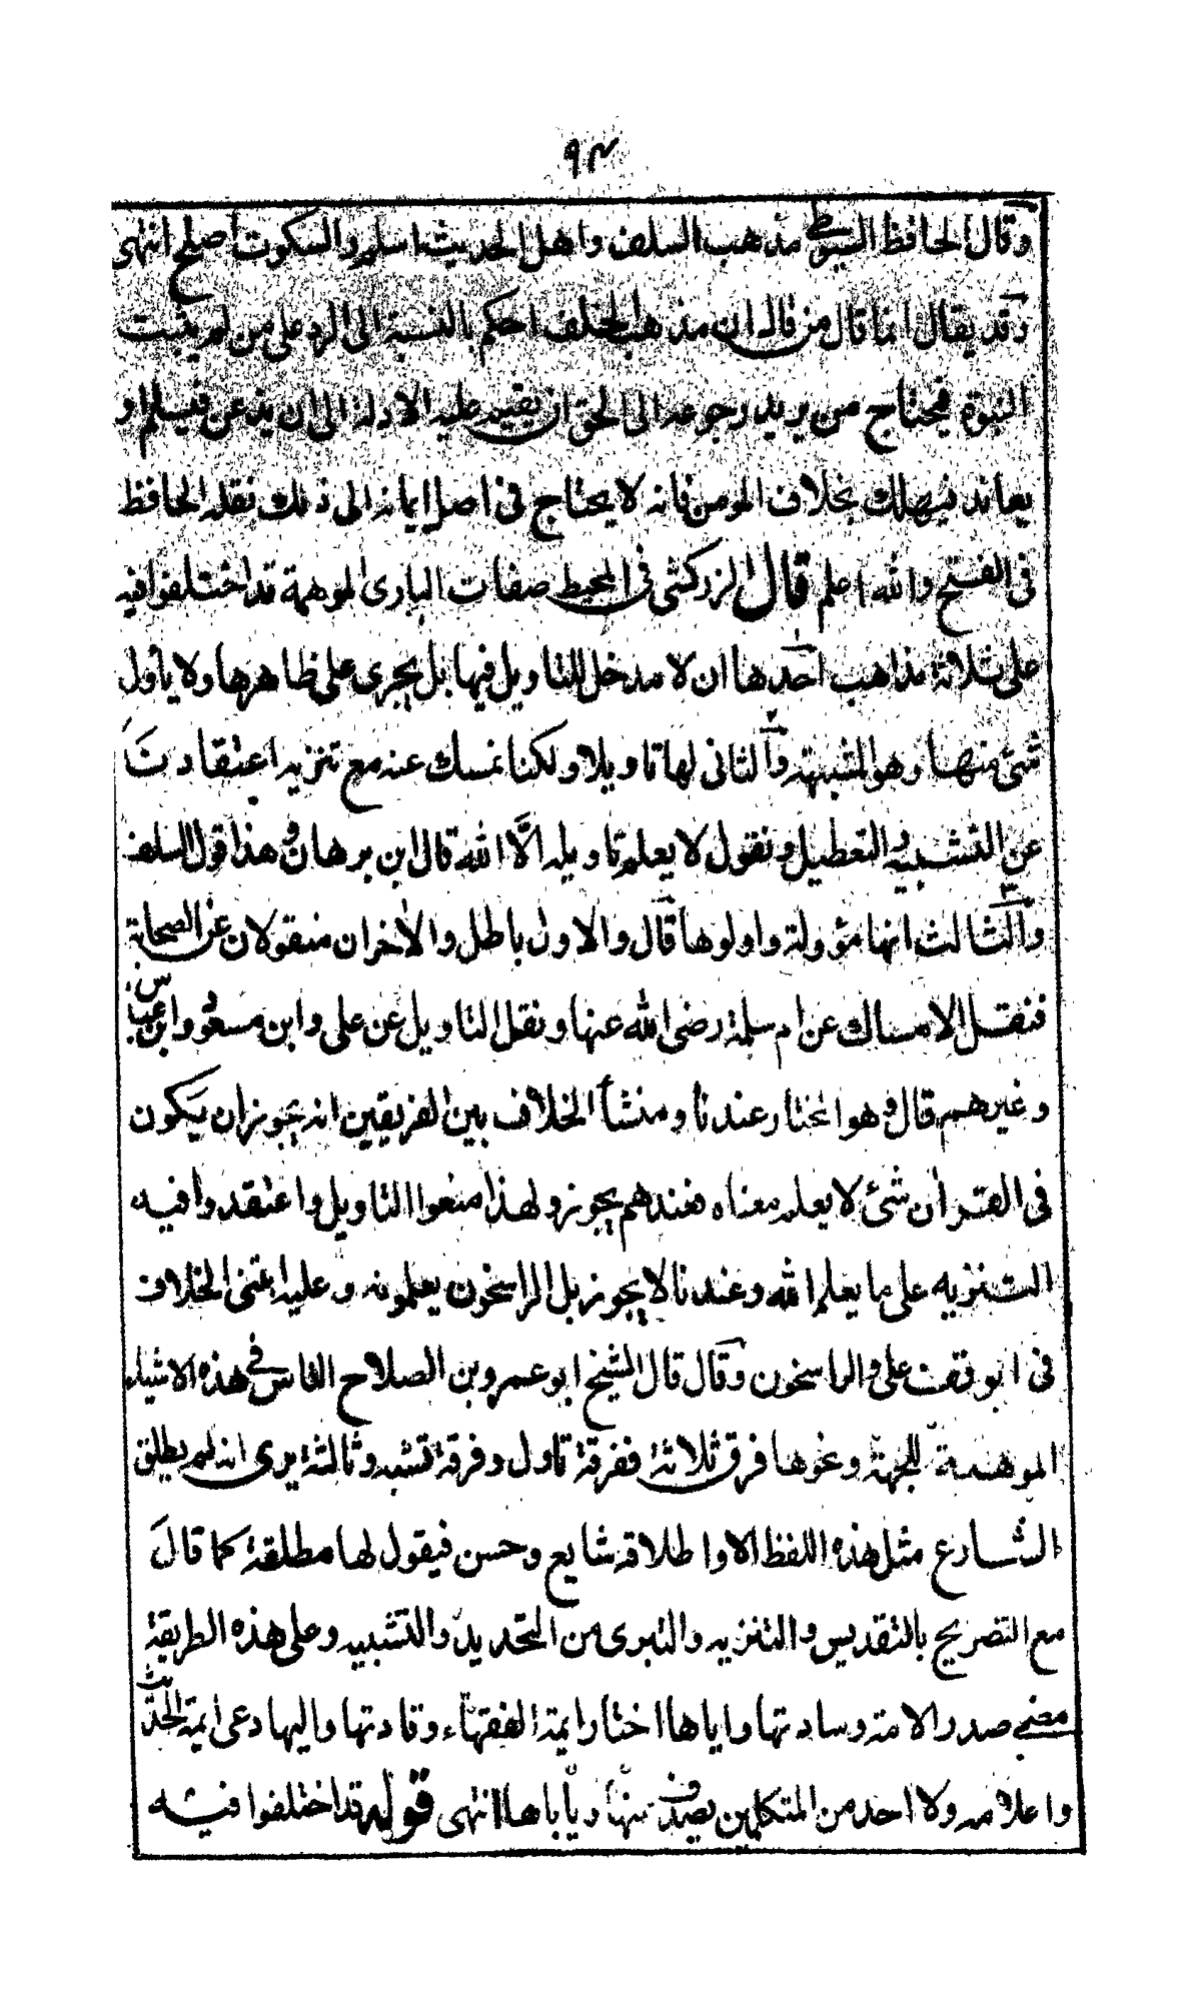 ٩٣
وقال الحافظ السيوطي مذهب السلف واهل الحديث اسلم والسكوت اصلح انتهى
وقد يقال انما قال من قال ان مذهب الخلف احكم بالنسبة الى الرد على من لم يثبت
النبوة فيحتاج من يريد رجوعه الى الحق ان يقيم عليه الادلة الى ان يذعن فيسلم او
يعاند فيهلك بخلاف المومن فانه لا يحتاج في اصل ايمانه الى ذلك نقله الحافظ
في الفتح والله اعلم قال الزركشي في المحيط صفات الباري الموهمة قد اختلفوا فيه
على ثلاثة مذاهب احدها ان لا مدخل للتاويل فيها بل يجرى على ظاهرها ولا يأول
شئ منها وهو المشبهة والثاني لها تاويلا ولكنا نمسك عنه مع تنزيه اعتقادنا
عن التشبيه والتعطيل ونقول لا يعلم تاويله الا الله قال ابن برهان وهذا قول السلف
والثالث انها مؤولة واولوها قال والاول باطل والأخران منقولان عن الصحابة
فنقل الامساك عن ام سلمة رضى الله عنها ونقل التاويل عن على وابن مسعود وابن عباس
وغيرهم قال وهو المختار عندنا ومنشأ الخلاف بين الفريقين انه يجوز ان يكون
في القرأن شئ لا يعلم معناه فعندهم يجوز ولهذا منعوا التاويل واعتقدوا فيه
التنزيه على ما يعلم الله وعندنا لا يجوز بل الراسخون يعلمونه وعليه ابتنى الخلاف
في الوقف على والراسخون وقال قال الشيخ ابو عمرو بن الصلاح الناس في هذه الاشياء
الموهمة للجهة ونحوها فرق ثلاثة ففرقة تاول وفرقة تشبه وثالثة يرى انه لم يطلق
الشارع مثل هذه اللفظ الا واطلاقه شايع وحسن فيقول لها مطلقة كما قال
مع التصريح بالتقديس والتنزيه والتبرى من التحديد والتشبيه وعلى هذه الطريقة
مضى صدر الامة وسادتها واياها اختار ايمة الفقهاء وقادتها واليها دعى ايمة الحديث
واعلامه ولا احد من المتكلمين يصدف عنها ويأباها انتهى قوله قد اختلفوا فيه